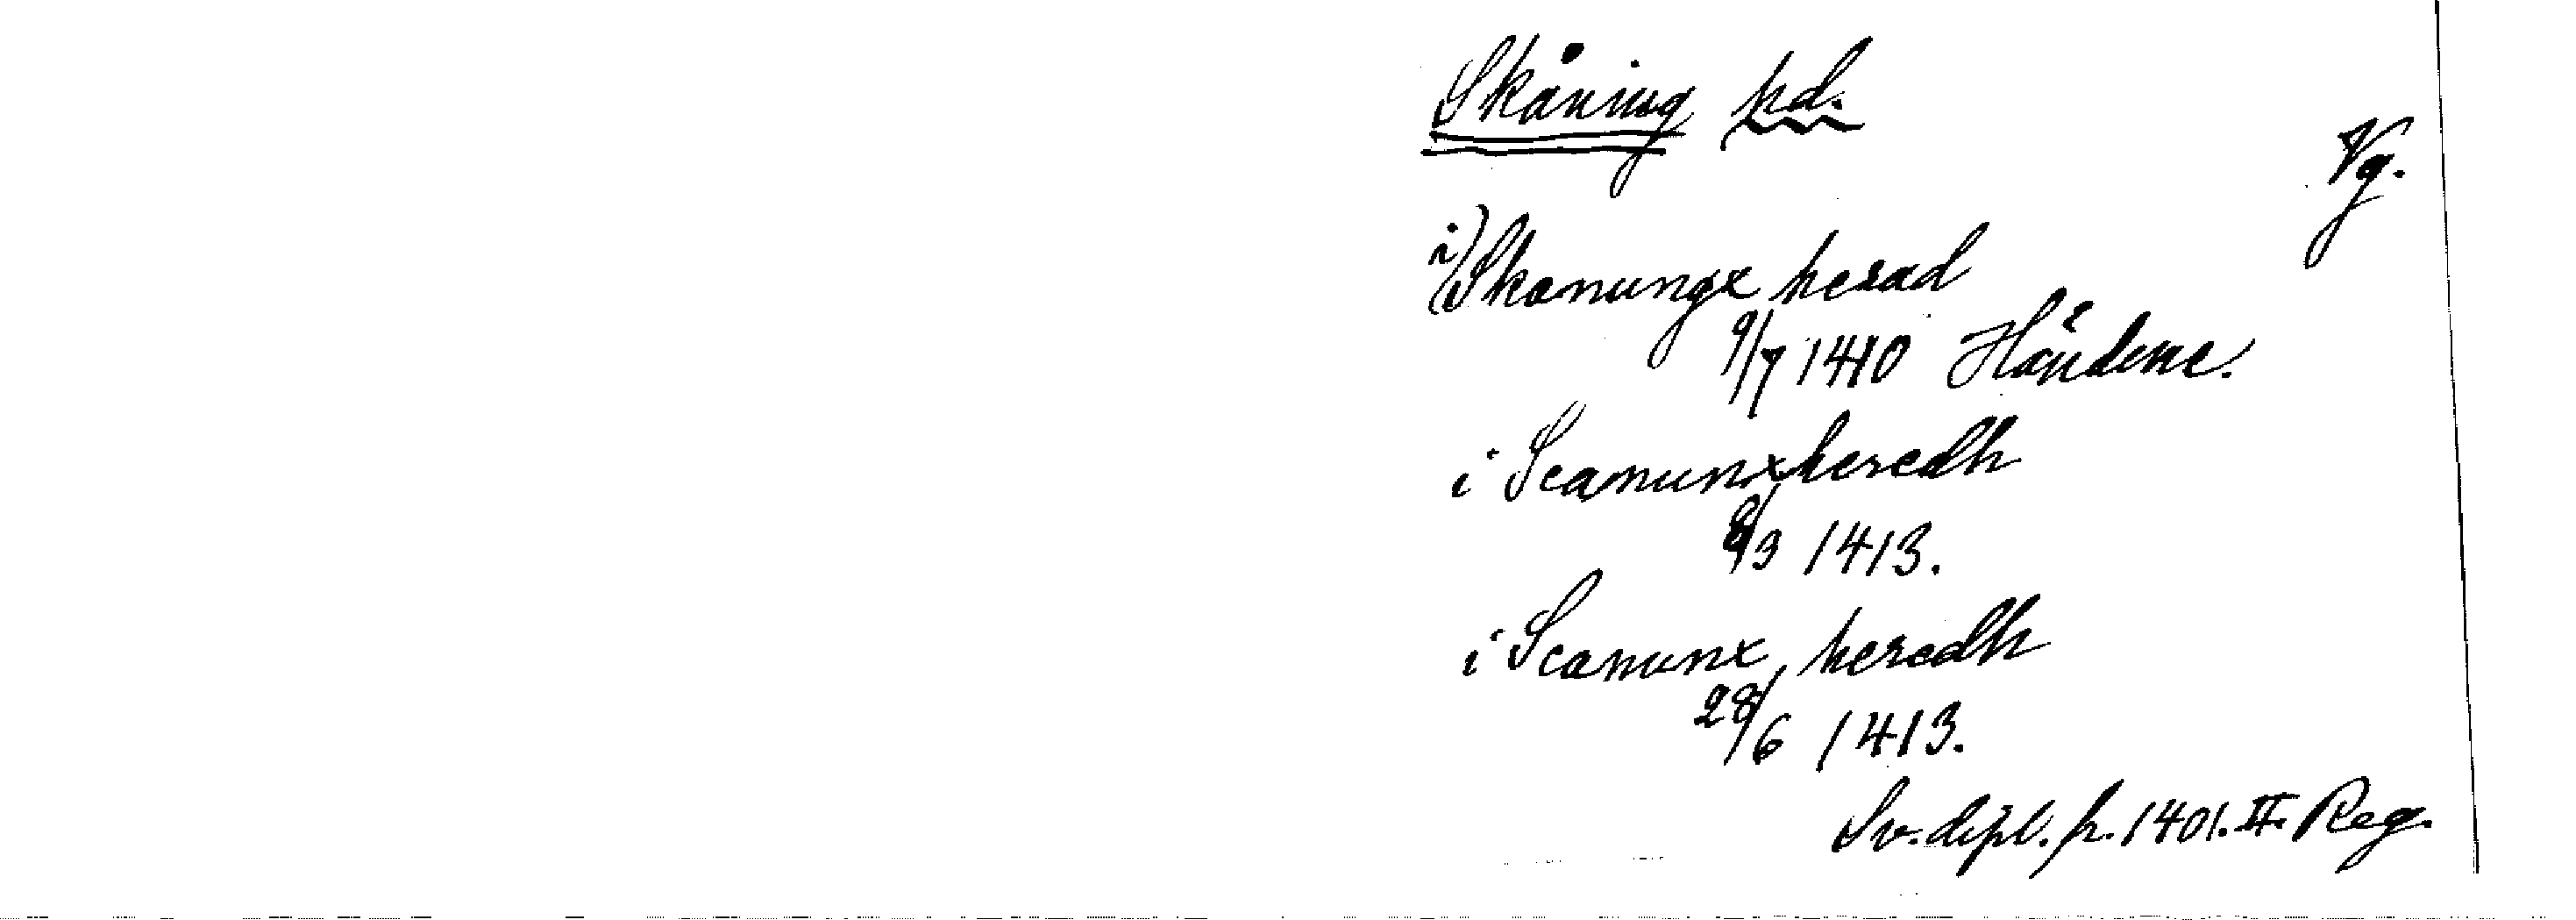 Skåning hd.
Vg.
i) Skanungx herad
9/7 1410 Händene.
i Scanunxheredh
8/3 1413.
i Scanunx heredh
28/6 1413.
Sv. dipl. fr. 1401. II. Reg.